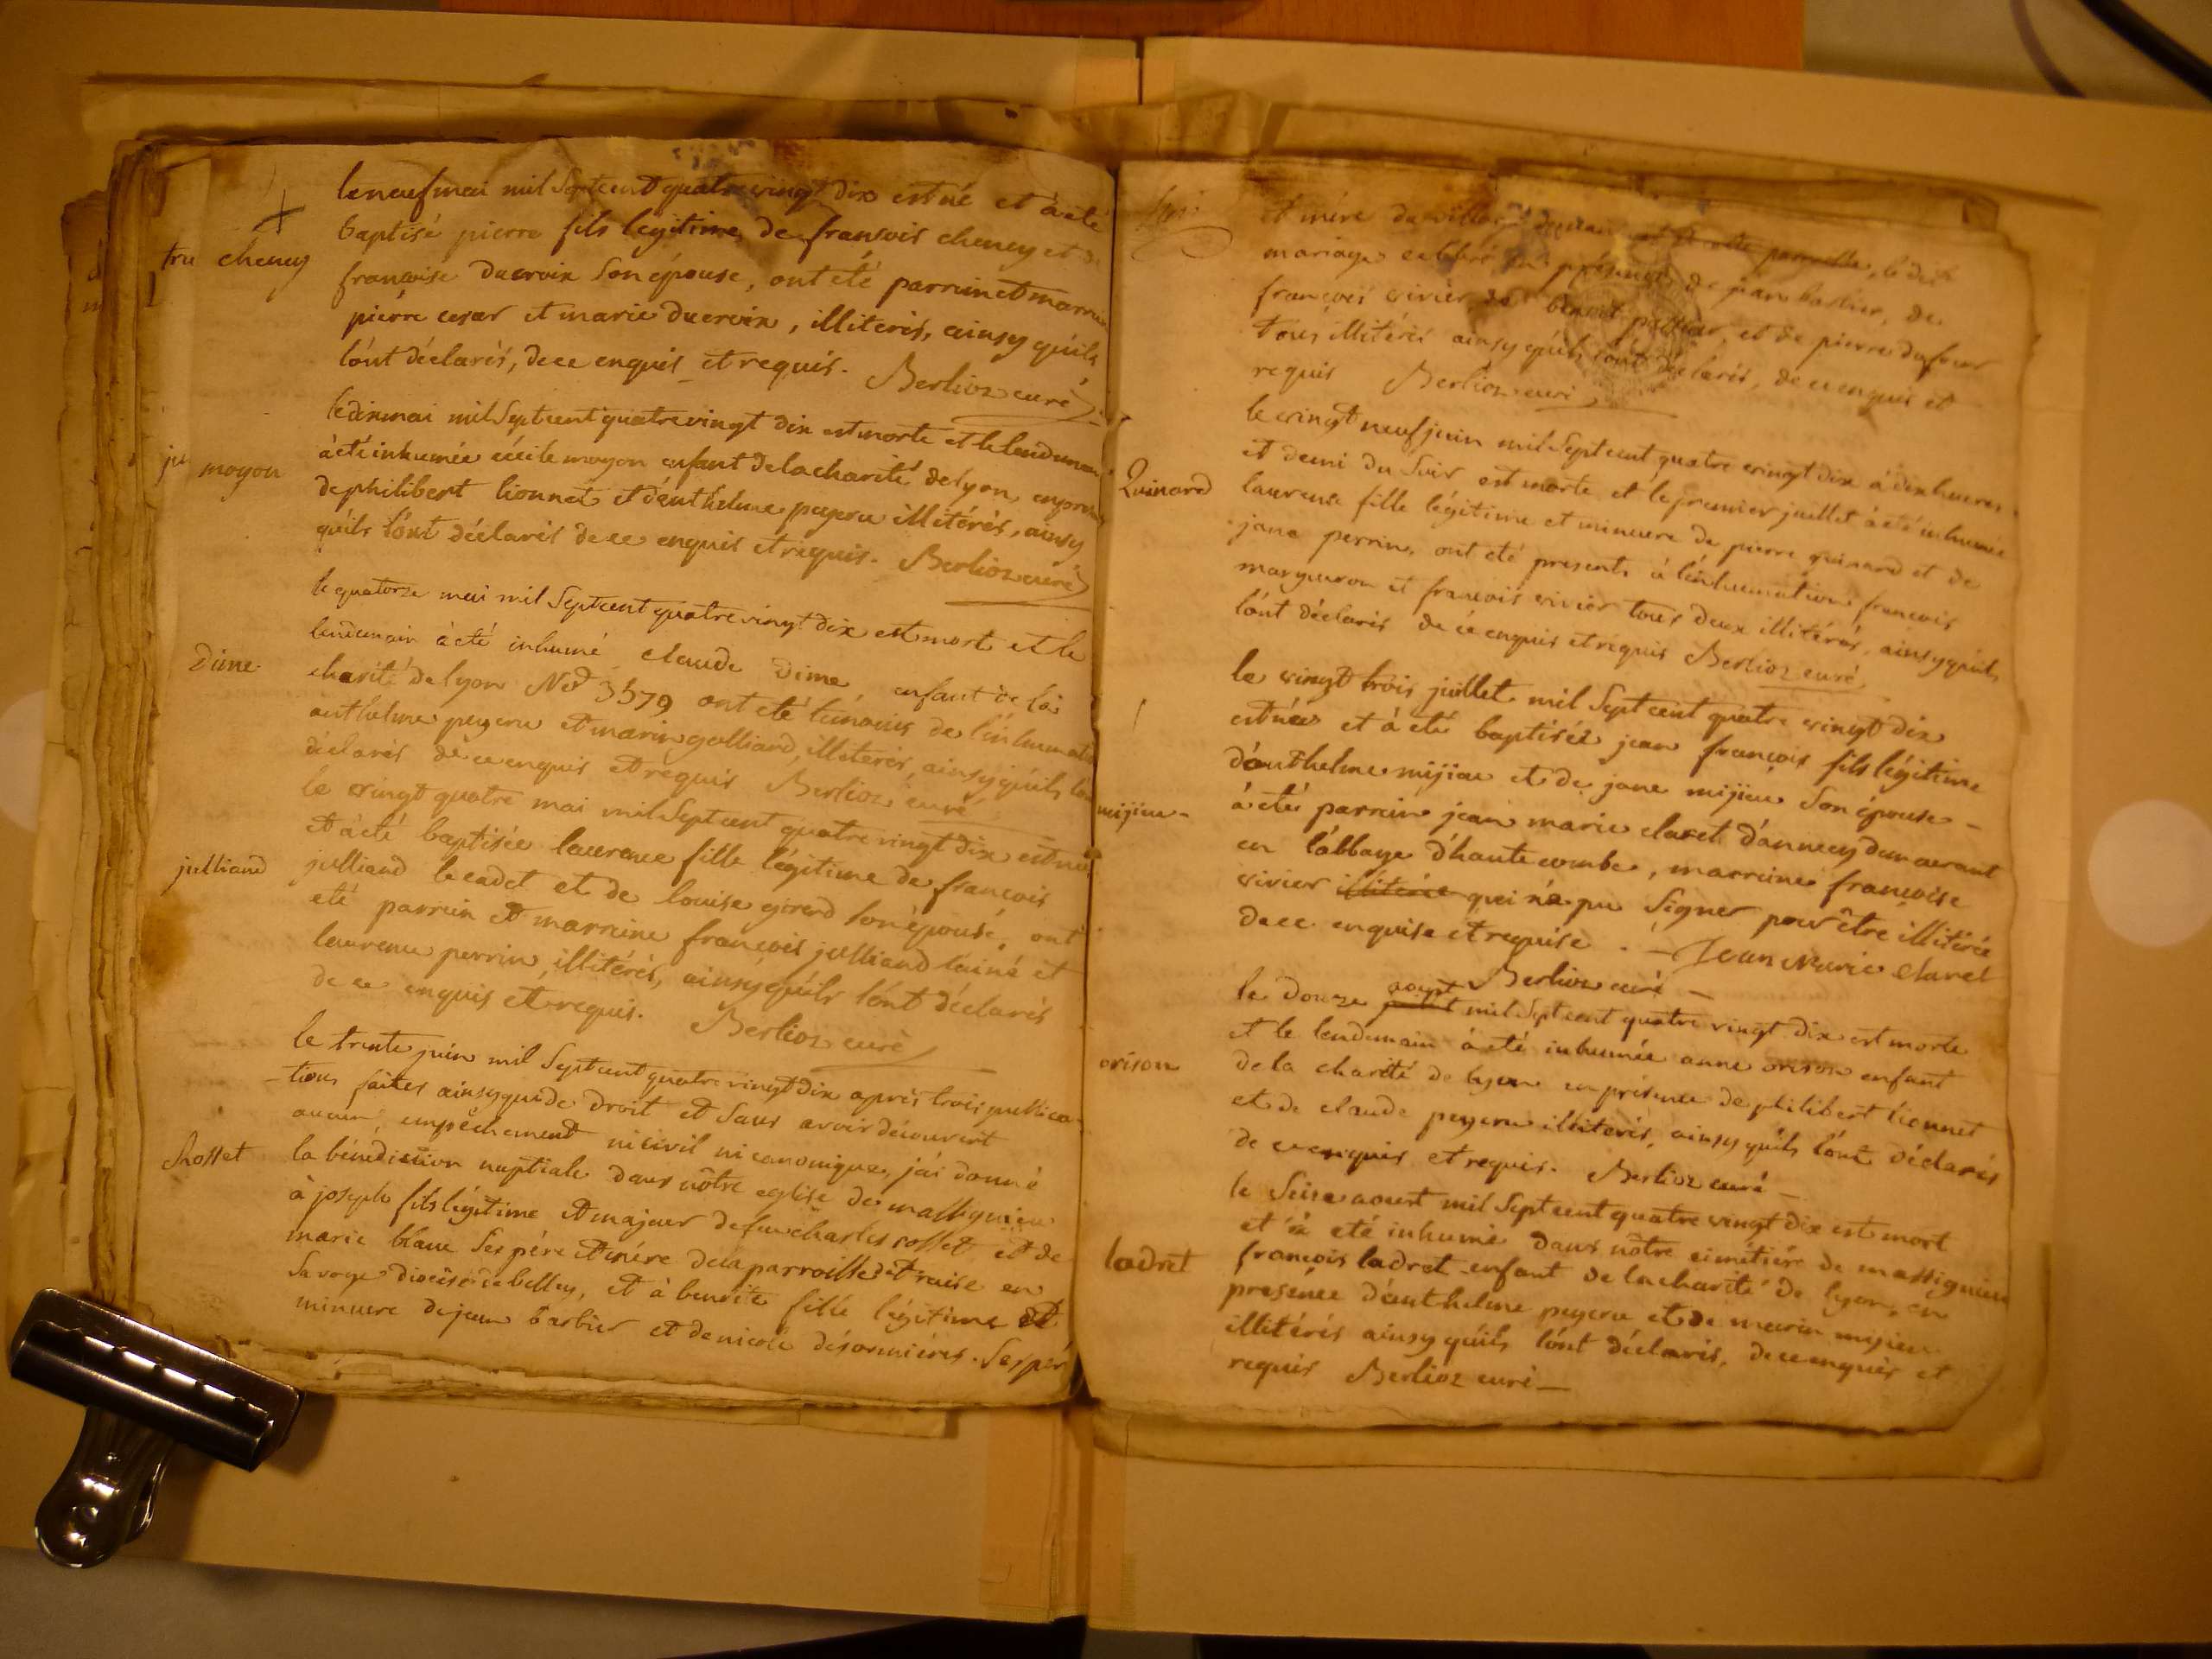 le neuf mai mil Septcent quatre vingt dix est né et à eté
cheney
baptisé pierre fils legitime de fransois cheney et de
francoise ducroix Son épouse, ont eté parrain et marrai
pierre cesar et marie ducroix, illiteris, ainsy qúils
lónt déclarés, de ce enquis et requis. Berlioz curé
le dix mai mil Septcent quatre vingt dix est morte et le lendemain
moyon
à eté inhumée cécile moyon enfant de la charité de lyon, en presen
de philibert lionnet et dánthelme peyeru illitérés, ainsy
qúils lónt déclarés de ce enquis et requis. Berlioz curé
le quatorze mai mil Septcent quatre vingt dix est mort et le
lendemain à eté inhumé claude dime, enfant de la
Dime
charité de lyon No 3579 ont eté temoins de línhumati
anthelme peyeru et marin galliard, illiterés, ainsy qúils lón
déclarés de ce enquis et requis Berlioz curé
le vingt quatre mai mil Septcent quatre vingt dix est née
et à eté baptisée laurence fille légitime de francois
julliand
julliand le cadet et de louise girerd son épouse, ont
eté parrain et marraine francois julliand láiné et
laurence perrin, illitérés, ainsy qúils lónt déclarés
de ce enquis et requis. Berlioz curé
le trente juin mil Septcent quatre vingt dix après trois publica-
-tions faites ainsy que de droit et Sans avoir découvert
aucun empêchement ni civil ni canonique, jái donné
Rosset
la bénédiction nuptiale dans nôtre eglise de massignieu
à joseph fils légitime et majeur de feu charles rosset et de
marie blanc Ses pére et mére de la parroisse de traise en
Savoye diocèse de belley, et à benoite fille légitime et
mineure de jean barbier et de nicole désormiéres. Ses pér
et mére du village
mariage célébré en présence de jean barbier, de
francois vivier, de benoit et de pierre dufour
tous illitérés ainsy qúils lónt déclarés, de ce enquis et
requis Berlioz curé
le vingt neuf juin mil Septcent quatre vingt dix à dix heures
et demi du Soir est morte et le premier juillet à eté inhumée
Quinard
laurence fille légitime et mineure de pierre quinard et de
jane perrin, ont eté presents à línhumation francois
marguron et francois vivier tous deux illitérés, ainsy qúils
lónt déclarés de ce enquis et requis Berlioz curé
le vingt trois juillet mil Septcent quatre vingt dix
est née et à eté baptisée jean francois fils légitime
dánthelme mijieu et de jane mijieu Son épouse -
mijieu -
à eté parrain jean marie claret dánnecy demeurant
en lábbaye dhautecombe, marraine francoise
vivier illiterée qui ná pu Signer pour être illitérée
de ce enquise et requise. - Jean Marie Claret
Berlioz curé -
le douze juillet aoust mil Septcent quatre vingt dix est morte
et le lendemain à eté inhumée anne orison enfant
orison
de la charité de lyon en présence de philibert lionnet
et de claude peyeru illiterés, ainsy qúils lónt déclarés
de ce enquis et requis. Berlioz curé -
le Seise aoust mil Septcent quatre vingt dix est mort
et à eté inhumé dans nôtre cimetiére de massignieu
ladret
francois ladret enfant de la charité de lyon, en
presence dánthelme peyeru et de marin mijieu
illitérés ainsy qúils lónt déclarés, de ce enquis et
requis Berlioz curé -